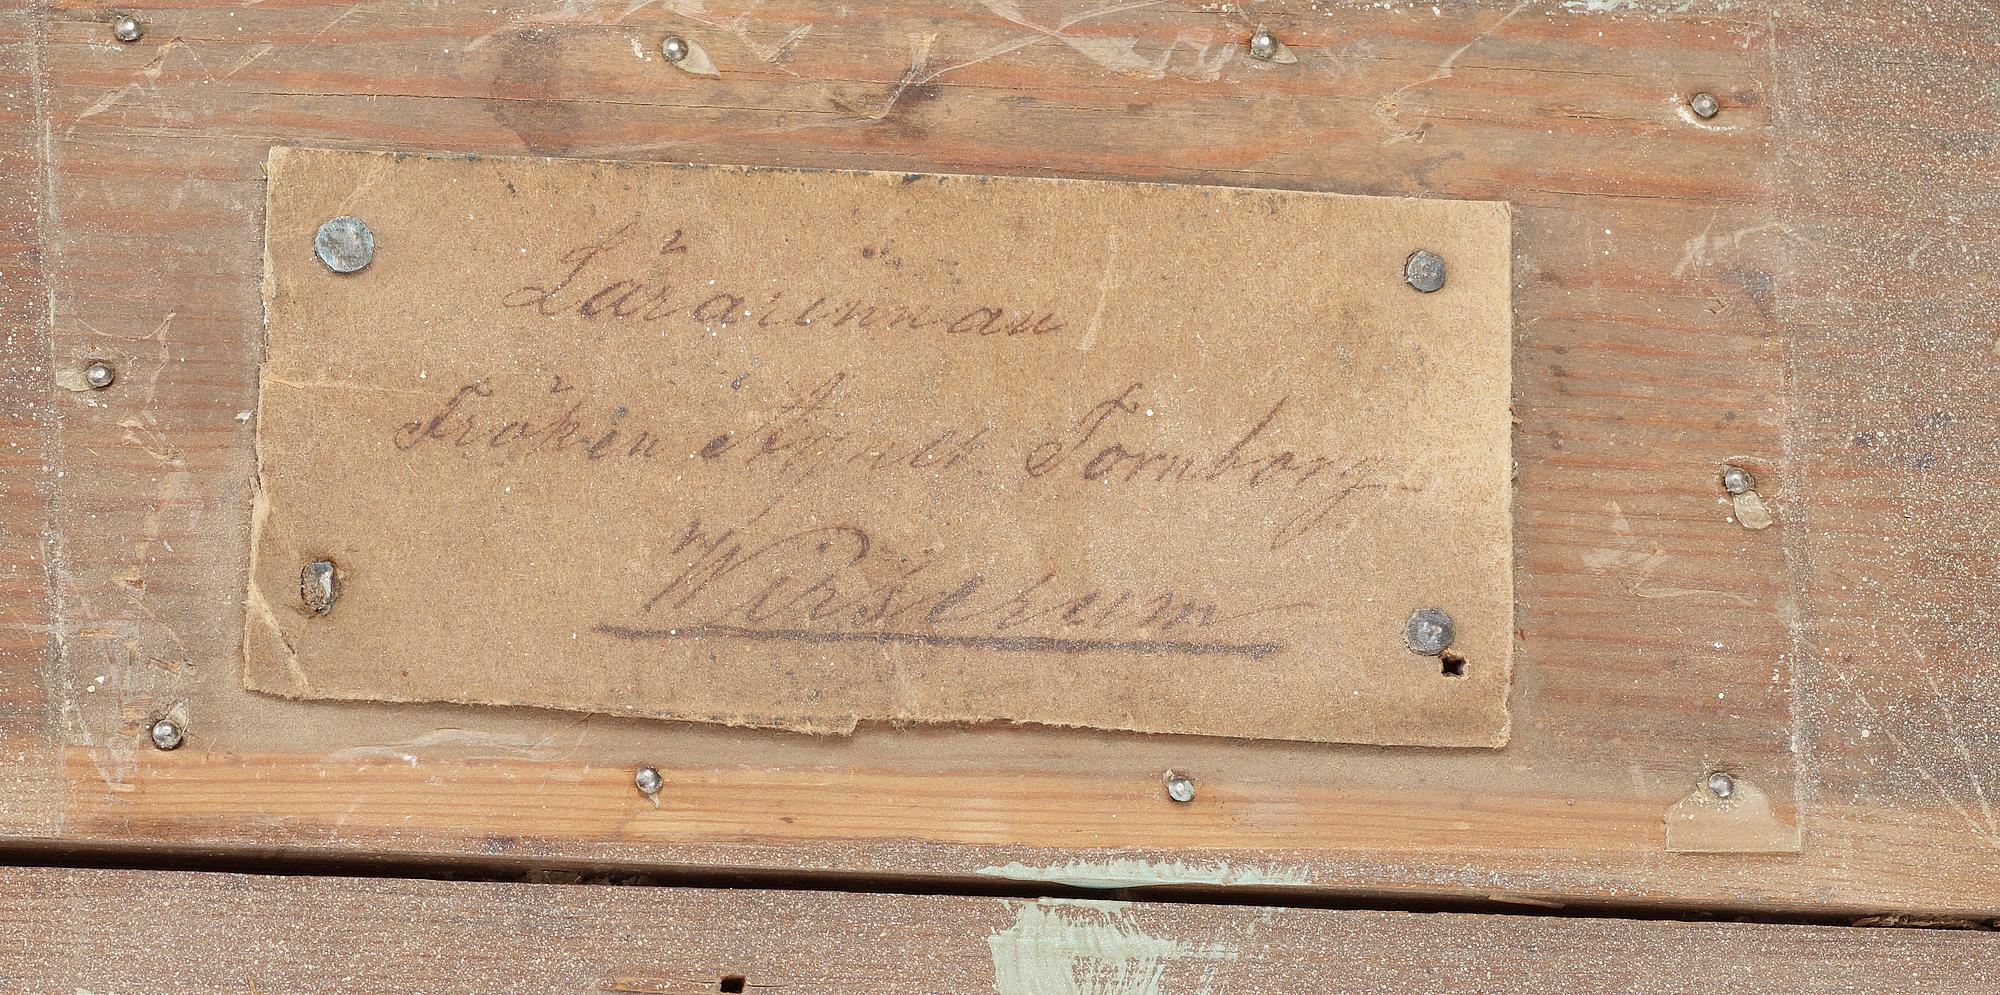 Lärarinnan
Fröken Agnes Tornborg
Wirserum